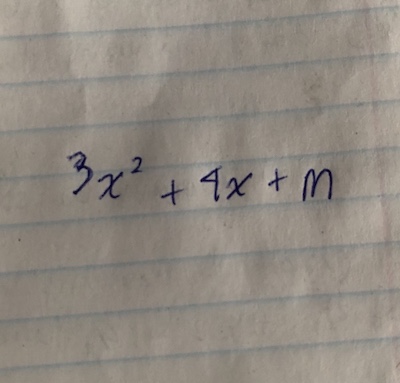 3x² + 4x + m